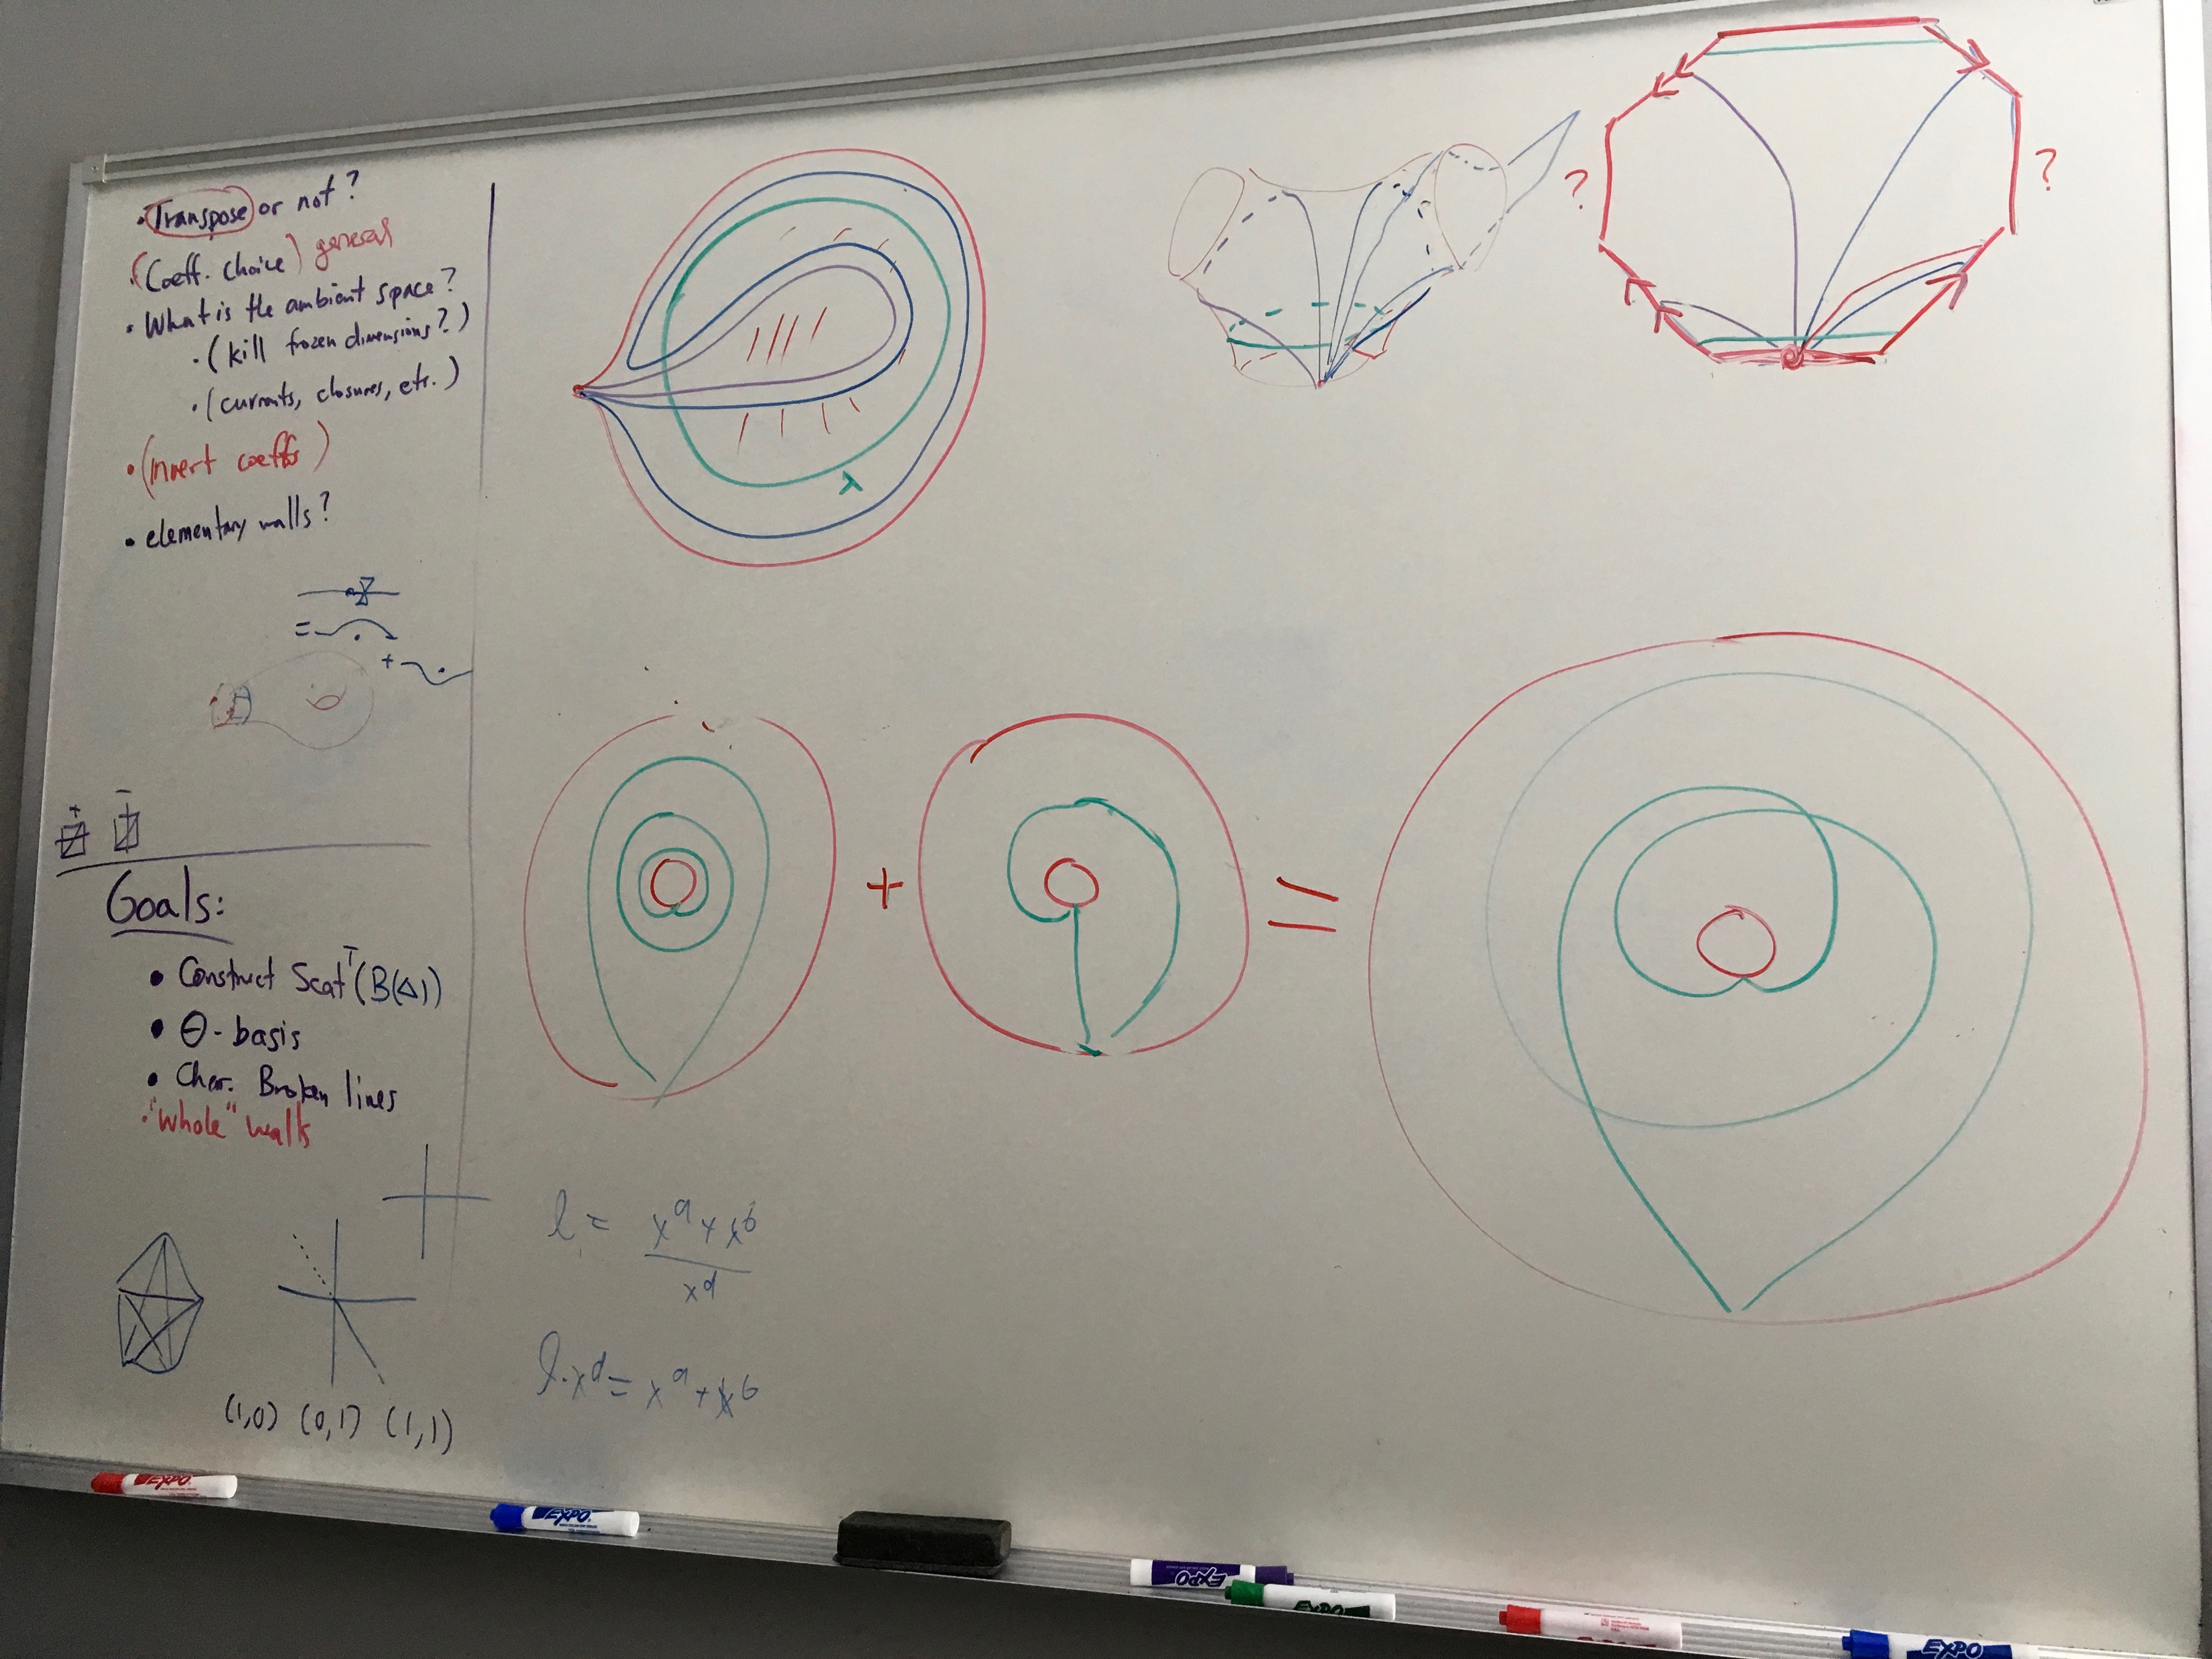 • Transpose or not?
• (Coeff. choice) general
• What is the ambient space?
• (kill frozen dimensions?)
• (currents, closures, etc.)
• (invert coeffs)
• elementary walls?
=
+
+ −
Goals:
• Construct Scat^T(B(Δ))
• Θ-basis
• Char. Broken lines
• "Whole" walls
(1,0) (0,1) (1,1)
λ
? ?
+ =
l = x^a + x^b
x^d
l·x^d = x^a + x^b
EXPO
EXPO
EXPO
EXPO
EXPO
EXPO